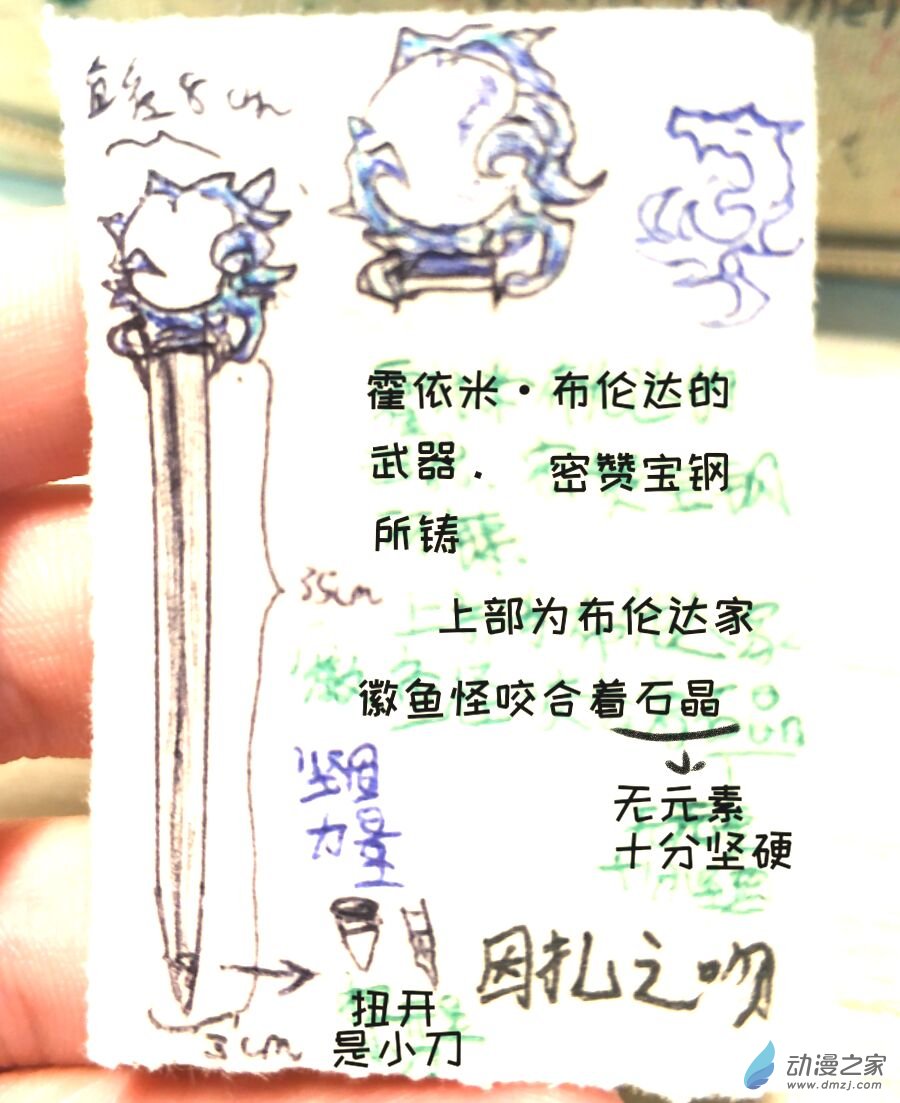 直径8cm
霍依米·布伦达的
武器. 密赞宝钢
所铸
35cm
上部为布伦达家
徽鱼怪咬合着石晶
无元素
十分坚硬
坚固
力量
因扎之吻
扭开
是小刀
3cm
动漫之家
www.dmzj.com